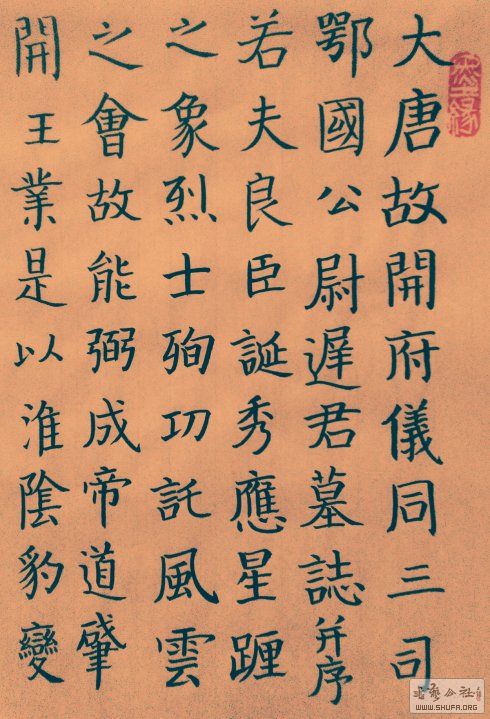 大唐故開府儀同三司
鄂國公尉遲君墓誌并序
若夫良臣誕秀應星躔
之象烈士殉功託風雲
之會故能弼成帝道肇
開王業是以淮陰豹變
公社
WWW.SHUFA.ORG